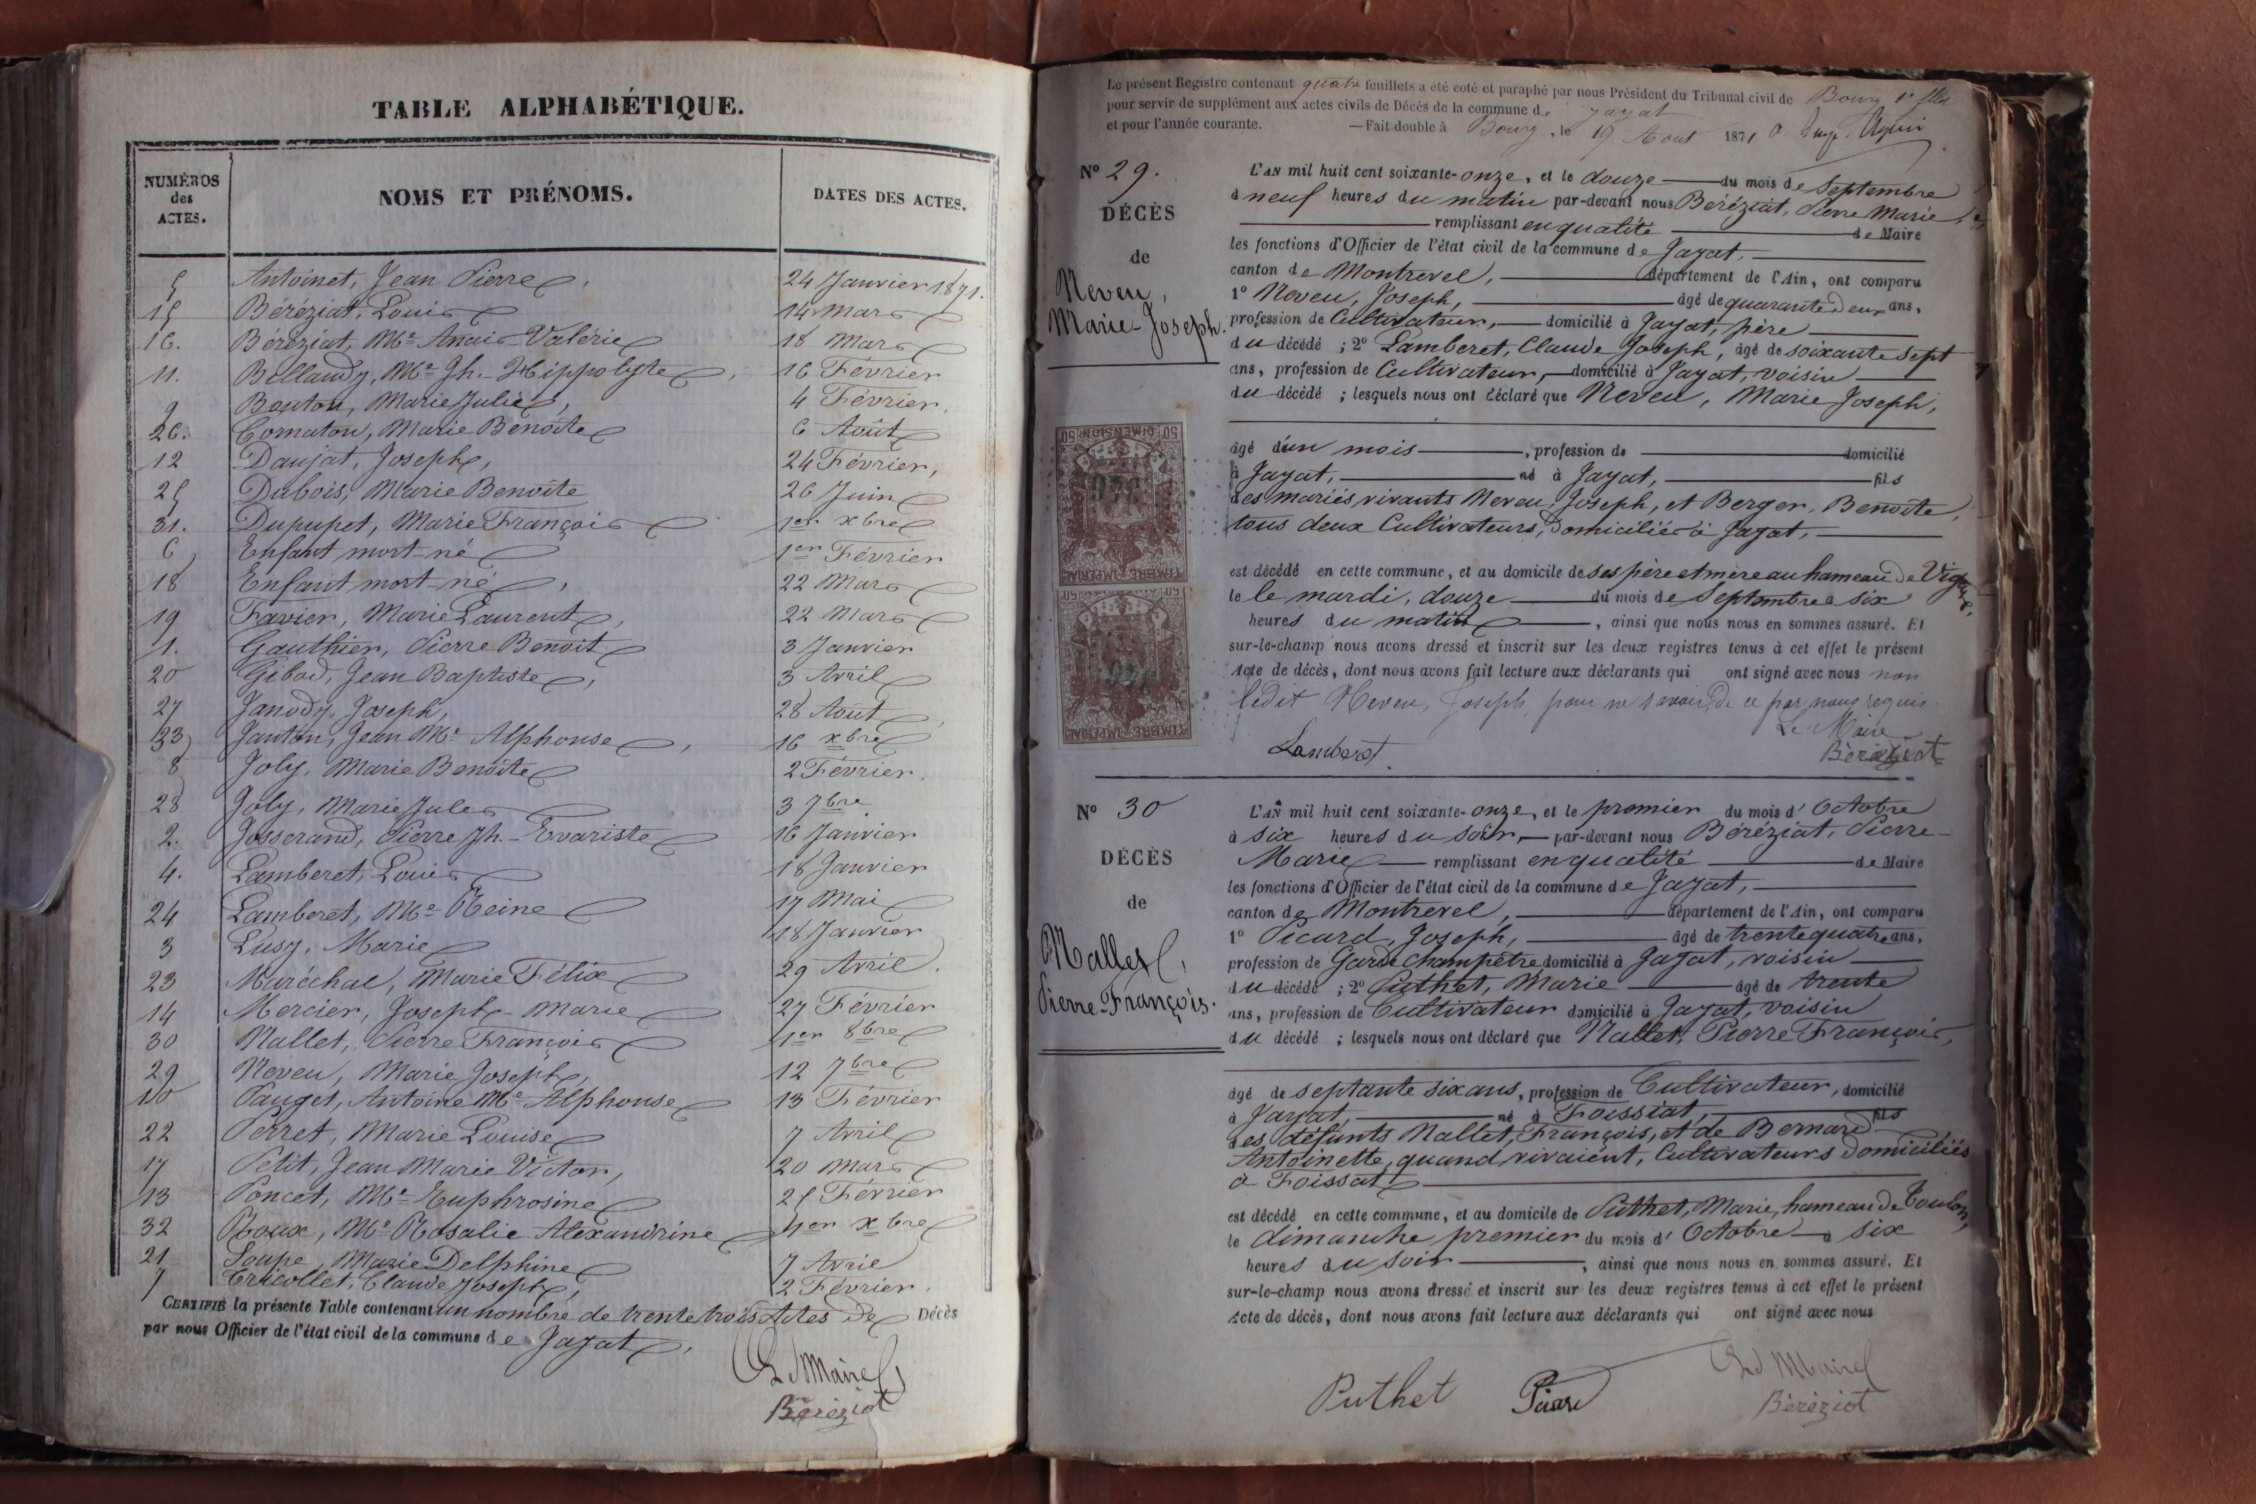 TABLE ALPHABÉTIQUE.
NUMÉROS des ACTES. NOMS ET PRÉNOMS. DATES DES ACTES.
5 Antoinet, Jean Pierre, 24 Janvier 1871.
15 Béréziat, Louis 14 Mars
16. Béréziat, Me Anais Valérie 18 Mars
11. Bellaudy, Me Jh. Hippolyte, 16 Février
9 Bouton, Marie Julie, 4 Février.
26. Cornaton, Marie Benoîte 6 Août
12 Daujat, Joseph, 24 Février,
25 Dubois, Marie Benoîte 26 Juin
31. Dupupet, Marie François 1er xbre
6 Enfant mort-né 1er Février
18 Enfant mort-né, 22 Mars
19 Favier, Marie Laurent, 22 Mars
1. Gauthier, Pierre Benoit 3 Janvier
20 Gibod, Jean Baptiste, 3 Avril
27 Janody, Joseph, 28 Août
33 Janton, Jean Me Alphonse, 16 xbre
8 Joly, Marie Benoîte 2 Février.
28 Joly, Marie Jules 3 7bre
2. Josserand, Pierre Jh. Evariste 16 Janvier
4. Lamberet, Louis 18 Janvier
24 Lamberet, Me Reine 17 Mai
3 Lusy, Marie 18 Janvier
23 Maréchal, Marie Félix 29 Avril.
14 Mercier, Joseph Marie 27 Février
30 Nallet, Pierre François 1er 8bre
29 Neveu, Marie Joseph, 12 7bre
10 Pauget, Antoine Me Alphonse 13 Février
22 Perret, Marie Louise 7 Avril
17 Petit, Jean Marie Victor, 20 Mars
13 Poncet, Me Euphrosine 25 Février
32 Roux, Me Rosalie Alexandrine 4er xbre
21 Soupe, Marie Delphine 7 Avril
7 Tricollet, Claude Joseph, 2 Février.
CERTIFIÉ la présente Table contenant un nombre de trente trois Actes de Décès
par nous Officier de l'état civil de la commune de Jayat,
Le Maire
Béréziat
Le présent Registre contenant quatre feuillets a été coté et paraphé par nous Président du Tribunal civil de Bourg
pour servir de supplément aux actes civils de Décès de la commune de Jayat
et pour l'année courante. — Fait double à Bourg, le 17 Aout 1871
N° 29.
DÉCÈS
de
Neveu,
Marie-Joseph.
L'AN mil huit cent soixante-onze, et le douze du mois de Septembre
à neuf heures du matin par-devant nous Béréziat, Pierre Marie
remplissant en qualité de Maire
les fonctions d'Officier de l'état civil de la commune de Jayat,
canton de Montrevel, département de l'Ain, ont comparu
1° Neveu, Joseph, âgé de quarante deux ans,
profession de Cultivateur, domicilié à Jayat, père
du décédé ; 2° Lamberet, Claude Joseph, âgé de soixante sept
ans, profession de Cultivateur, domicilié à Jayat, voisin
du décédé ; lesquels nous ont déclaré que Neveu, Marie Joseph,
âgé d'un mois, profession de domicilié
à Jayat, né à Jayat, fils
des mariés vivants Neveu, Joseph, et Berger, Benoîte,
tous deux Cultivateurs, domiciliés à Jayat,
est décédé en cette commune, et au domicile de ses père et mère au hameau de
le le mardi, douze du mois de Septembre à six
heures du matin, ainsi que nous nous en sommes assuré. Et
sur-le-champ nous avons dressé et inscrit sur les deux registres tenus à cet effet le présent
Acte de décès, dont nous avons fait lecture aux déclarants qui ont signé avec nous non
ledit Neveu, Joseph, pour ne savoir, de ce par nous requis.
Le Maire
Lamberet. Béréziat
50 DIMENSION 50
TIMBRE IMPÉRIAL
TIMBRE IMPÉRIAL
N° 30
DÉCÈS
de
Nallet,
Pierre-François.
L'AN mil huit cent soixante-onze, et le premier du mois d'Octobre
à six heures du soir, par-devant nous Béréziat, Pierre-
Marie remplissant en qualité de Maire
les fonctions d'Officier de l'état civil de la commune de Jayat,
canton de Montrevel, département de l'Ain, ont comparu
1° Picard, Joseph, âgé de trente quatre ans,
profession de Garde Champêtre domicilié à Jayat, voisin
du décédé ; 2° Puthet, Marie âgé de trente
ans, profession de Cultivateur domicilié à Jayat, voisin
du décédé ; lesquels nous ont déclaré que Nallet, Pierre François,
âgé de septante six ans, profession de Cultivateur, domicilié
à Jayat, né à Foissiat, fils
des défunts Nallet, François, et de Bernard
Antoinette, quand vivaient, Cultivateurs domiciliés
à Foissat
est décédé en cette commune, et au domicile de Puthet, Marie, hameau de Toulon,
le dimanche premier du mois d'Octobre à six
heures du soir, ainsi que nous nous en sommes assuré. Et
sur-le-champ nous avons dressé et inscrit sur les deux registres tenus à cet effet le présent
Acte de décès, dont nous avons fait lecture aux déclarants qui ont signé avec nous
Le Maire
Puthet Picard Béréziat